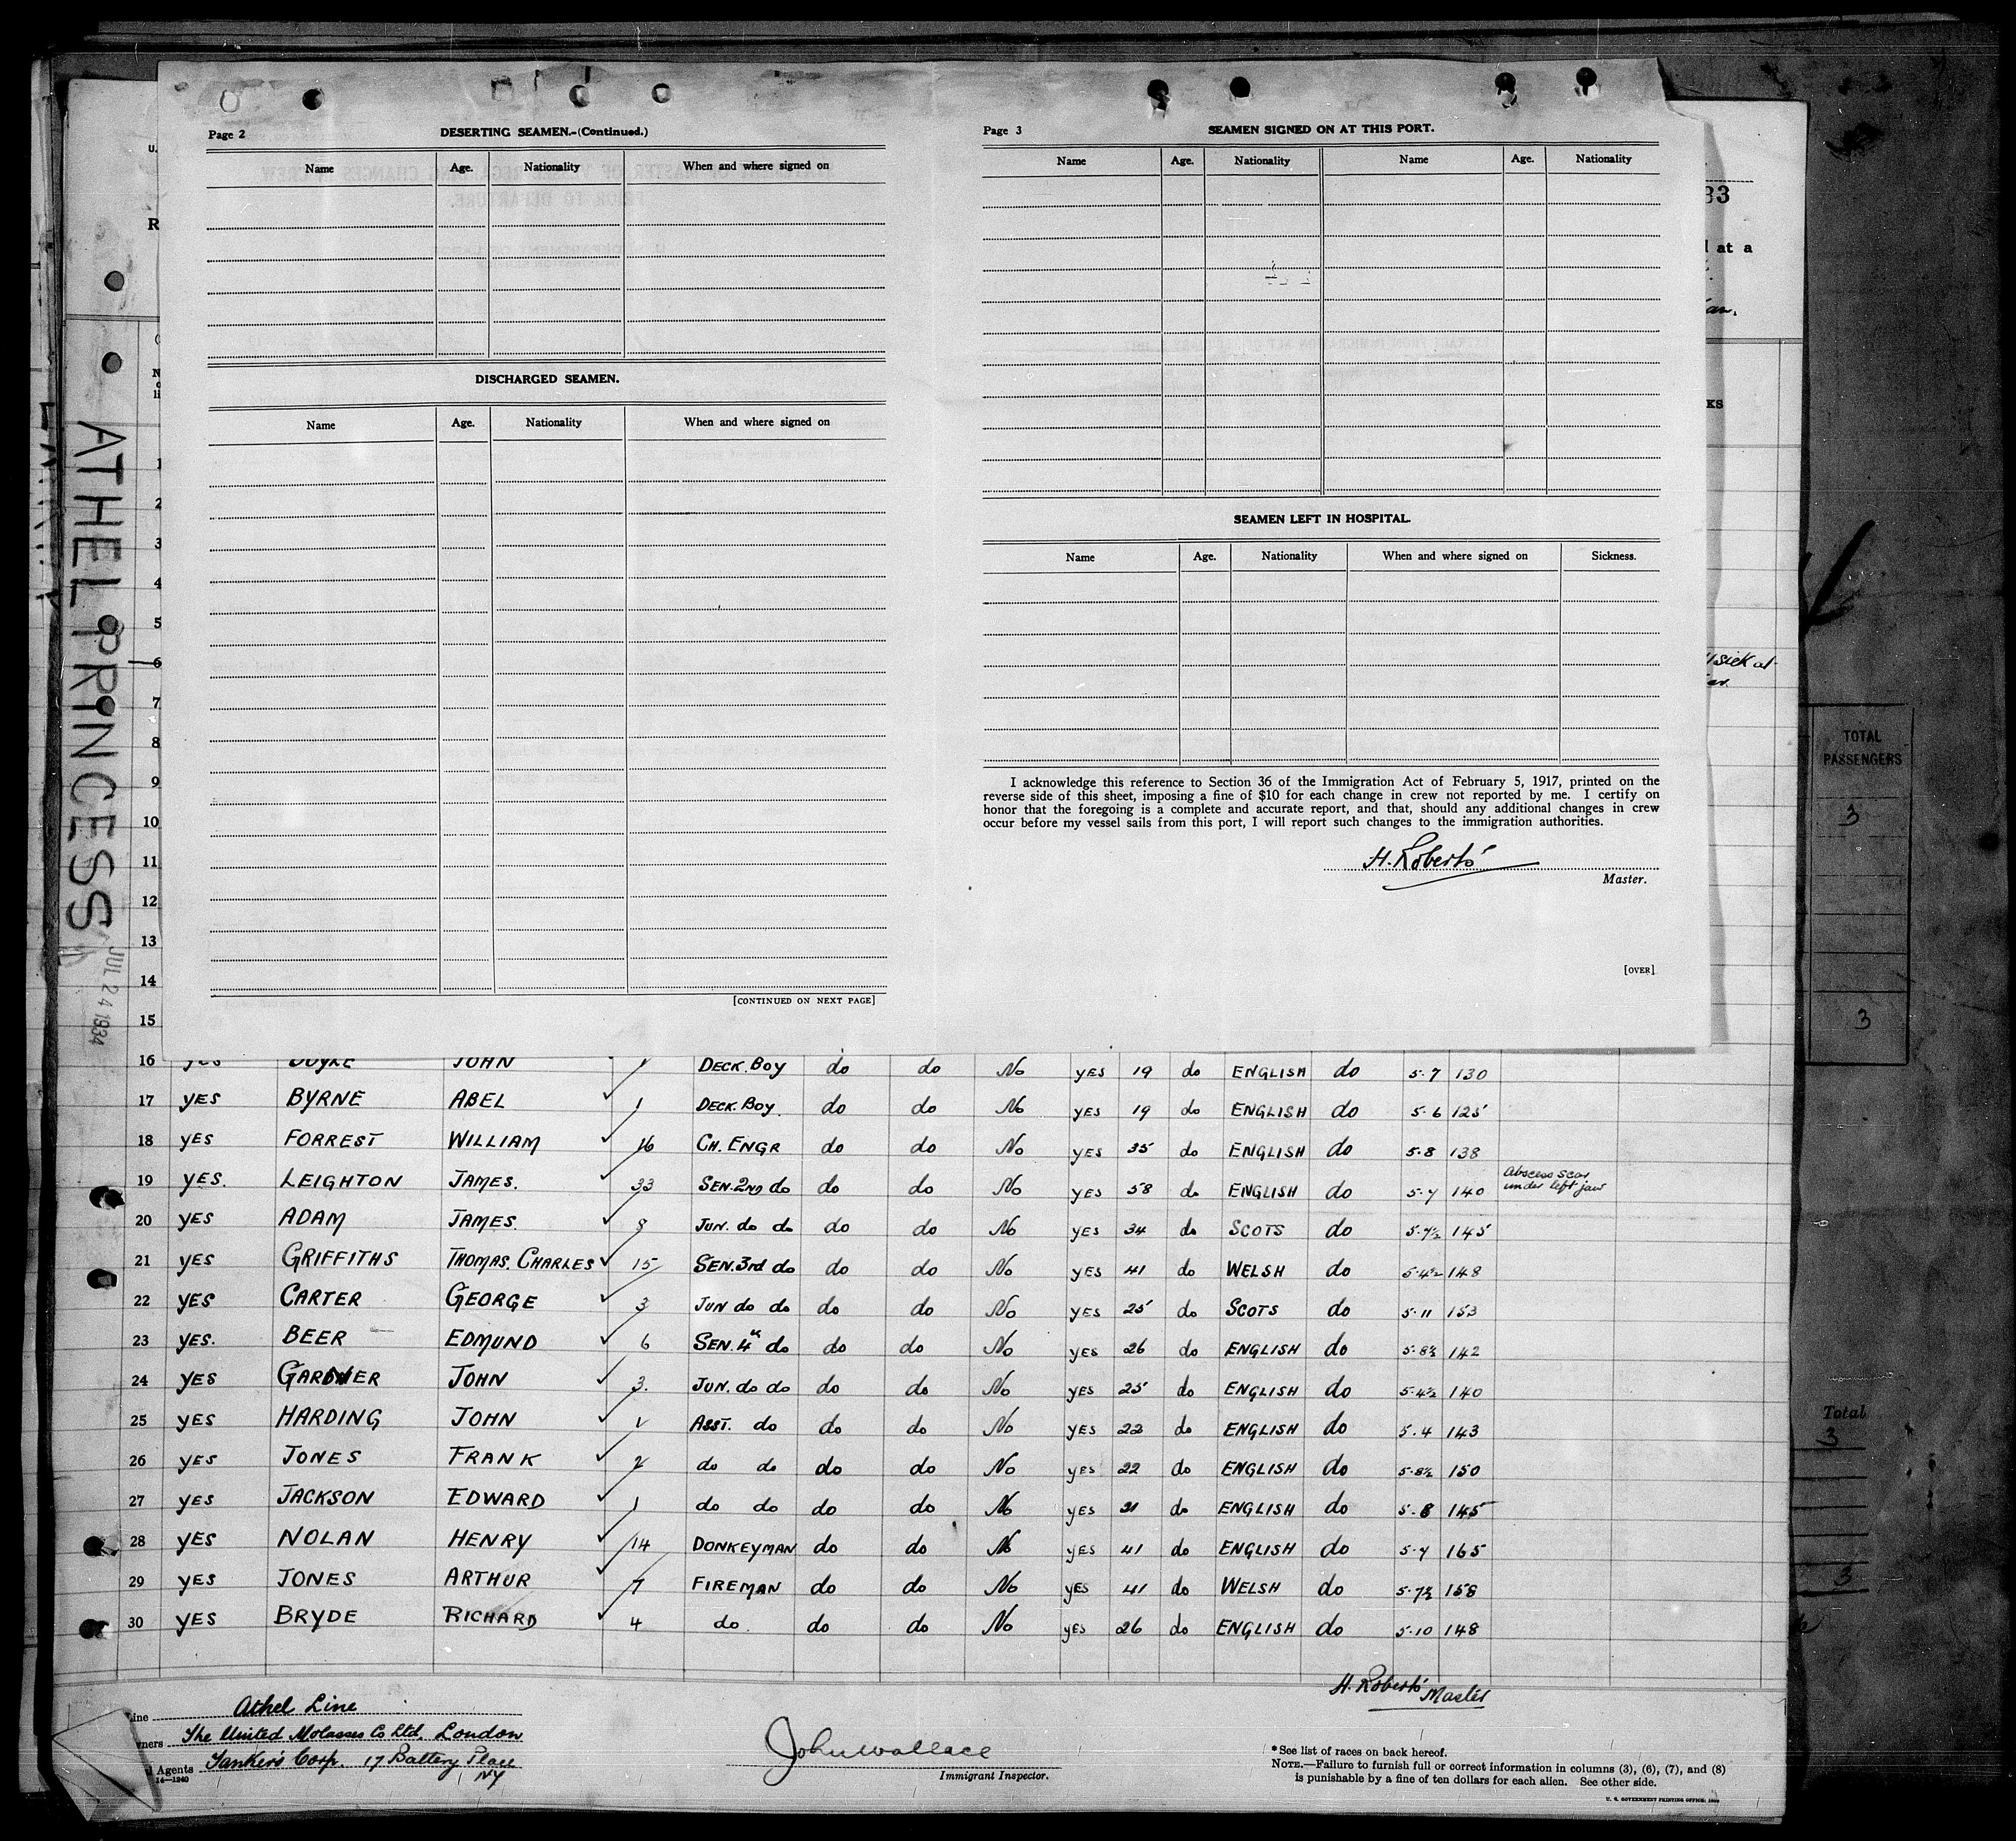 Page 2 DESERTING SEAMEN.-(Continued.)
Name Age. Nationality When and where signed on
DISCHARGED SEAMEN.
Name Age. Nationality When and where signed on
[CONTINUED ON NEXT PAGE]
Page 3 SEAMEN SIGNED ON AT THIS PORT.
Name Age. Nationality Name Age. Nationality
SEAMEN LEFT IN HOSPITAL.
Name Age. Nationality When and where signed on Sickness.
I acknowledge this reference to Section 36 of the Immigration Act of February 5, 1917, printed on the
reverse side of this sheet, imposing a fine of $10 for each change in crew not reported by me. I certify on
honor that the foregoing is a complete and accurate report, and that, should any additional changes in crew
occur before my vessel sails from this port, I will report such changes to the immigration authorities.
H. Roberts
Master.
[OVER]
33
at a
KS
sick at
TOTAL
PASSENGERS
3
3
Total
3
3
ATHELPRINCESS
JUL 24 1934
1
2
3
4
5
6
7
8
9
10
11
12
13
14
15
16 JOHN 1 DECK. BOY do do No YES 19 do ENGLISH do 5.7 130
17 YES BYRNE ABEL 1 DECK. BOY. do do No YES 19 do ENGLISH do 5.6 125
18 YES FORREST WILLIAM 16 CH. ENGR do do No YES 35 do ENGLISH do 5.8 138
19 YES. LEIGHTON JAMES. 33 SEN. 2ND do do do No YES 58 do ENGLISH do 5.7 140 Abscess scar under left jaw
20 YES ADAM JAMES. 8 JUN. do do do do No YES 34 do SCOTS do 5.7½ 145
21 YES GRIFFITHS THOMAS. CHARLES 15 SEN. 3rd do do do No YES 41 do WELSH do 5.4½ 148
22 YES CARTER GEORGE 3 JUN do do do do No YES 25 do SCOTS do 5.11 153
23 YES. BEER EDMUND 6 SEN. 4th do do do No YES 26 do ENGLISH do 5.8½ 142
24 YES GARDNER JOHN 3. JUN. do do do do No YES 25 do ENGLISH do 5.4½ 140
25 YES HARDING JOHN 1 ASST. do do do No YES 22 do ENGLISH do 5.4 143
26 YES JONES FRANK 2 do do do do No YES 22 do ENGLISH do 5.8½ 150
27 YES JACKSON EDWARD 1 do do do do No YES 21 do ENGLISH do 5.8 145
28 YES NOLAN HENRY 14 DONKEYMAN do do No YES 41 do ENGLISH do 5.7 165
29 YES JONES ARTHUR 7 FIREMAN do do No YES 41 do WELSH do 5.7½ 158
30 YES BRYDE RICHARD 4 do do do No YES 26 do ENGLISH do 5.10 148
H. Roberts Master
Line Athel Line
The United Molasses Co Ltd. London
Agents Tankers Corp. 17 Battery Place
NY
14—1240
John Wallace
Immigrant Inspector.
*See list of races on back hereof.
NOTE.—Failure to furnish full or correct information in columns (3), (6), (7), and (8)
is punishable by a fine of ten dollars for each alien. See other side.
U. S. GOVERNMENT PRINTING OFFICE: